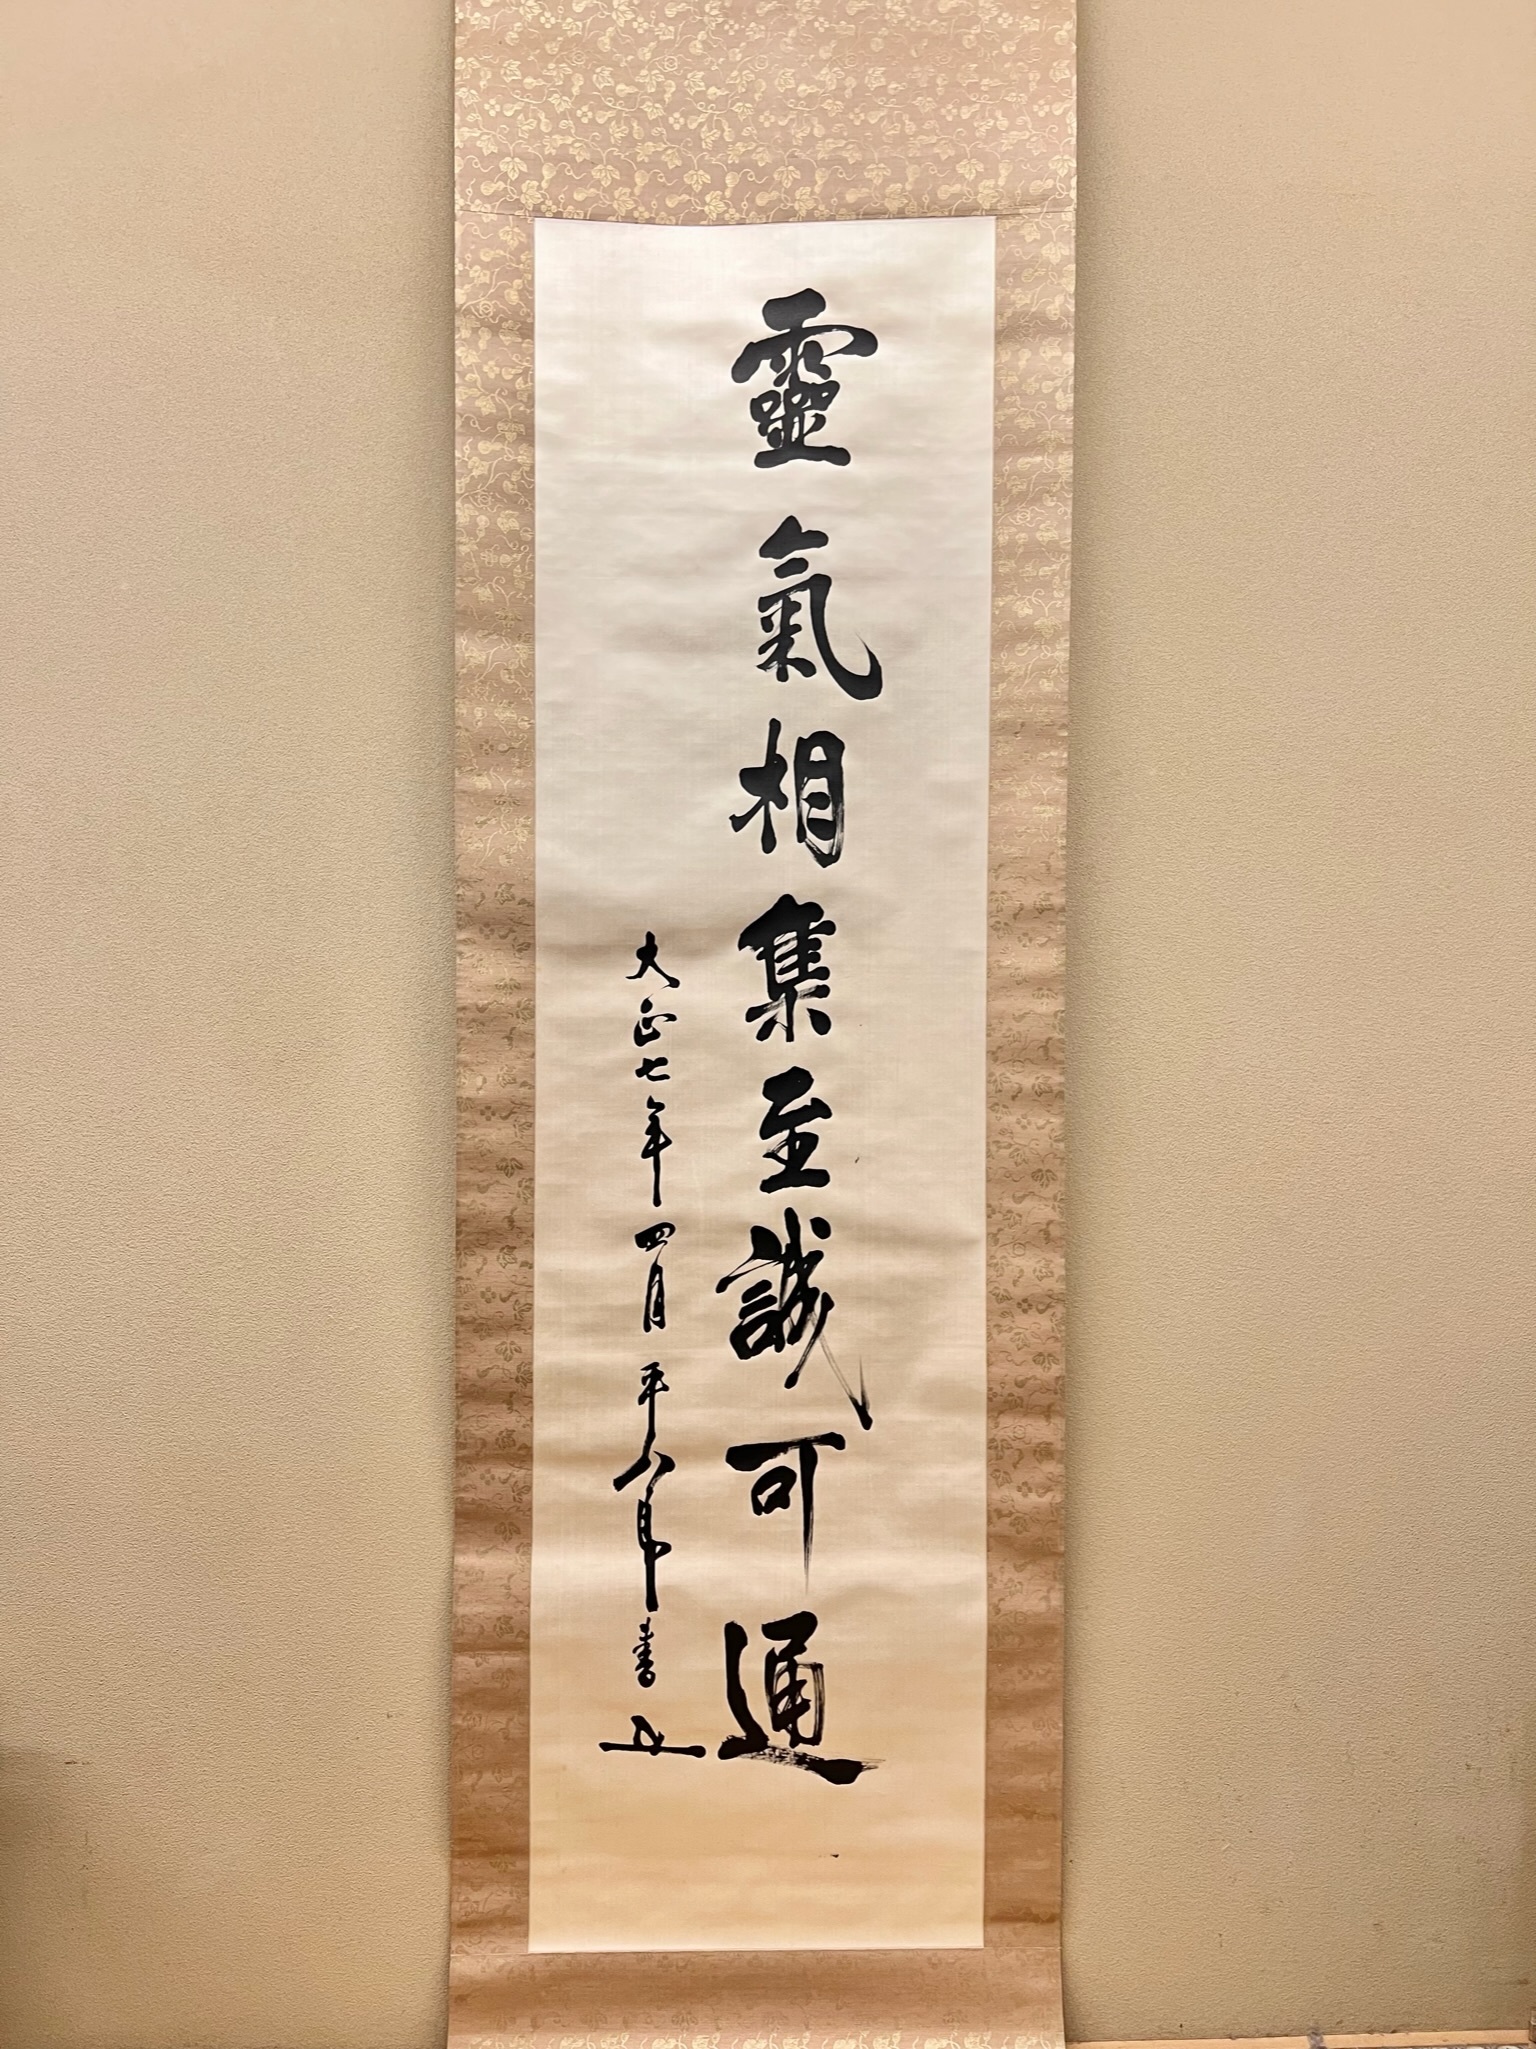 靈氣相集至誠可通
大正七年四月 平八郎書